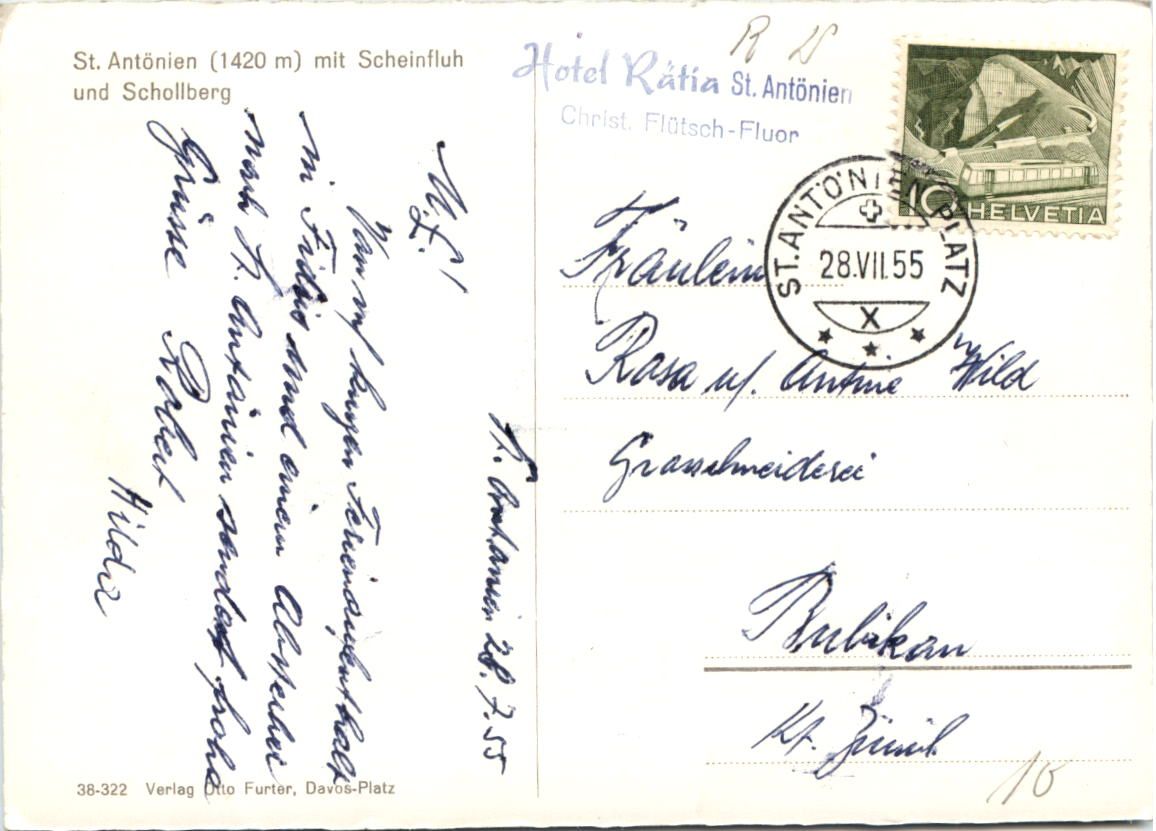 St. Antönien (1420 m) mit Scheinfluh
und Schollberg
Hotel Rätia St. Antönien
Christ. Flütsch-Fluor
HELVETIA
10
ST. ANTÖNIEN PLATZ
28.VII.55
X
St. Antönien 28.7.55
M. L.!
Vom kurzen Ferienaufenthalt
in Fideris und einem Abstecher
nach St. Antönien sendet frohe
Grüsse Robert
Hilda
Fräulein
Rosa u/. Wild
Grasschneiderei
Bubikon
Kt. Zürich
10
38-322 Verlag Otto Furter, Davos-Platz